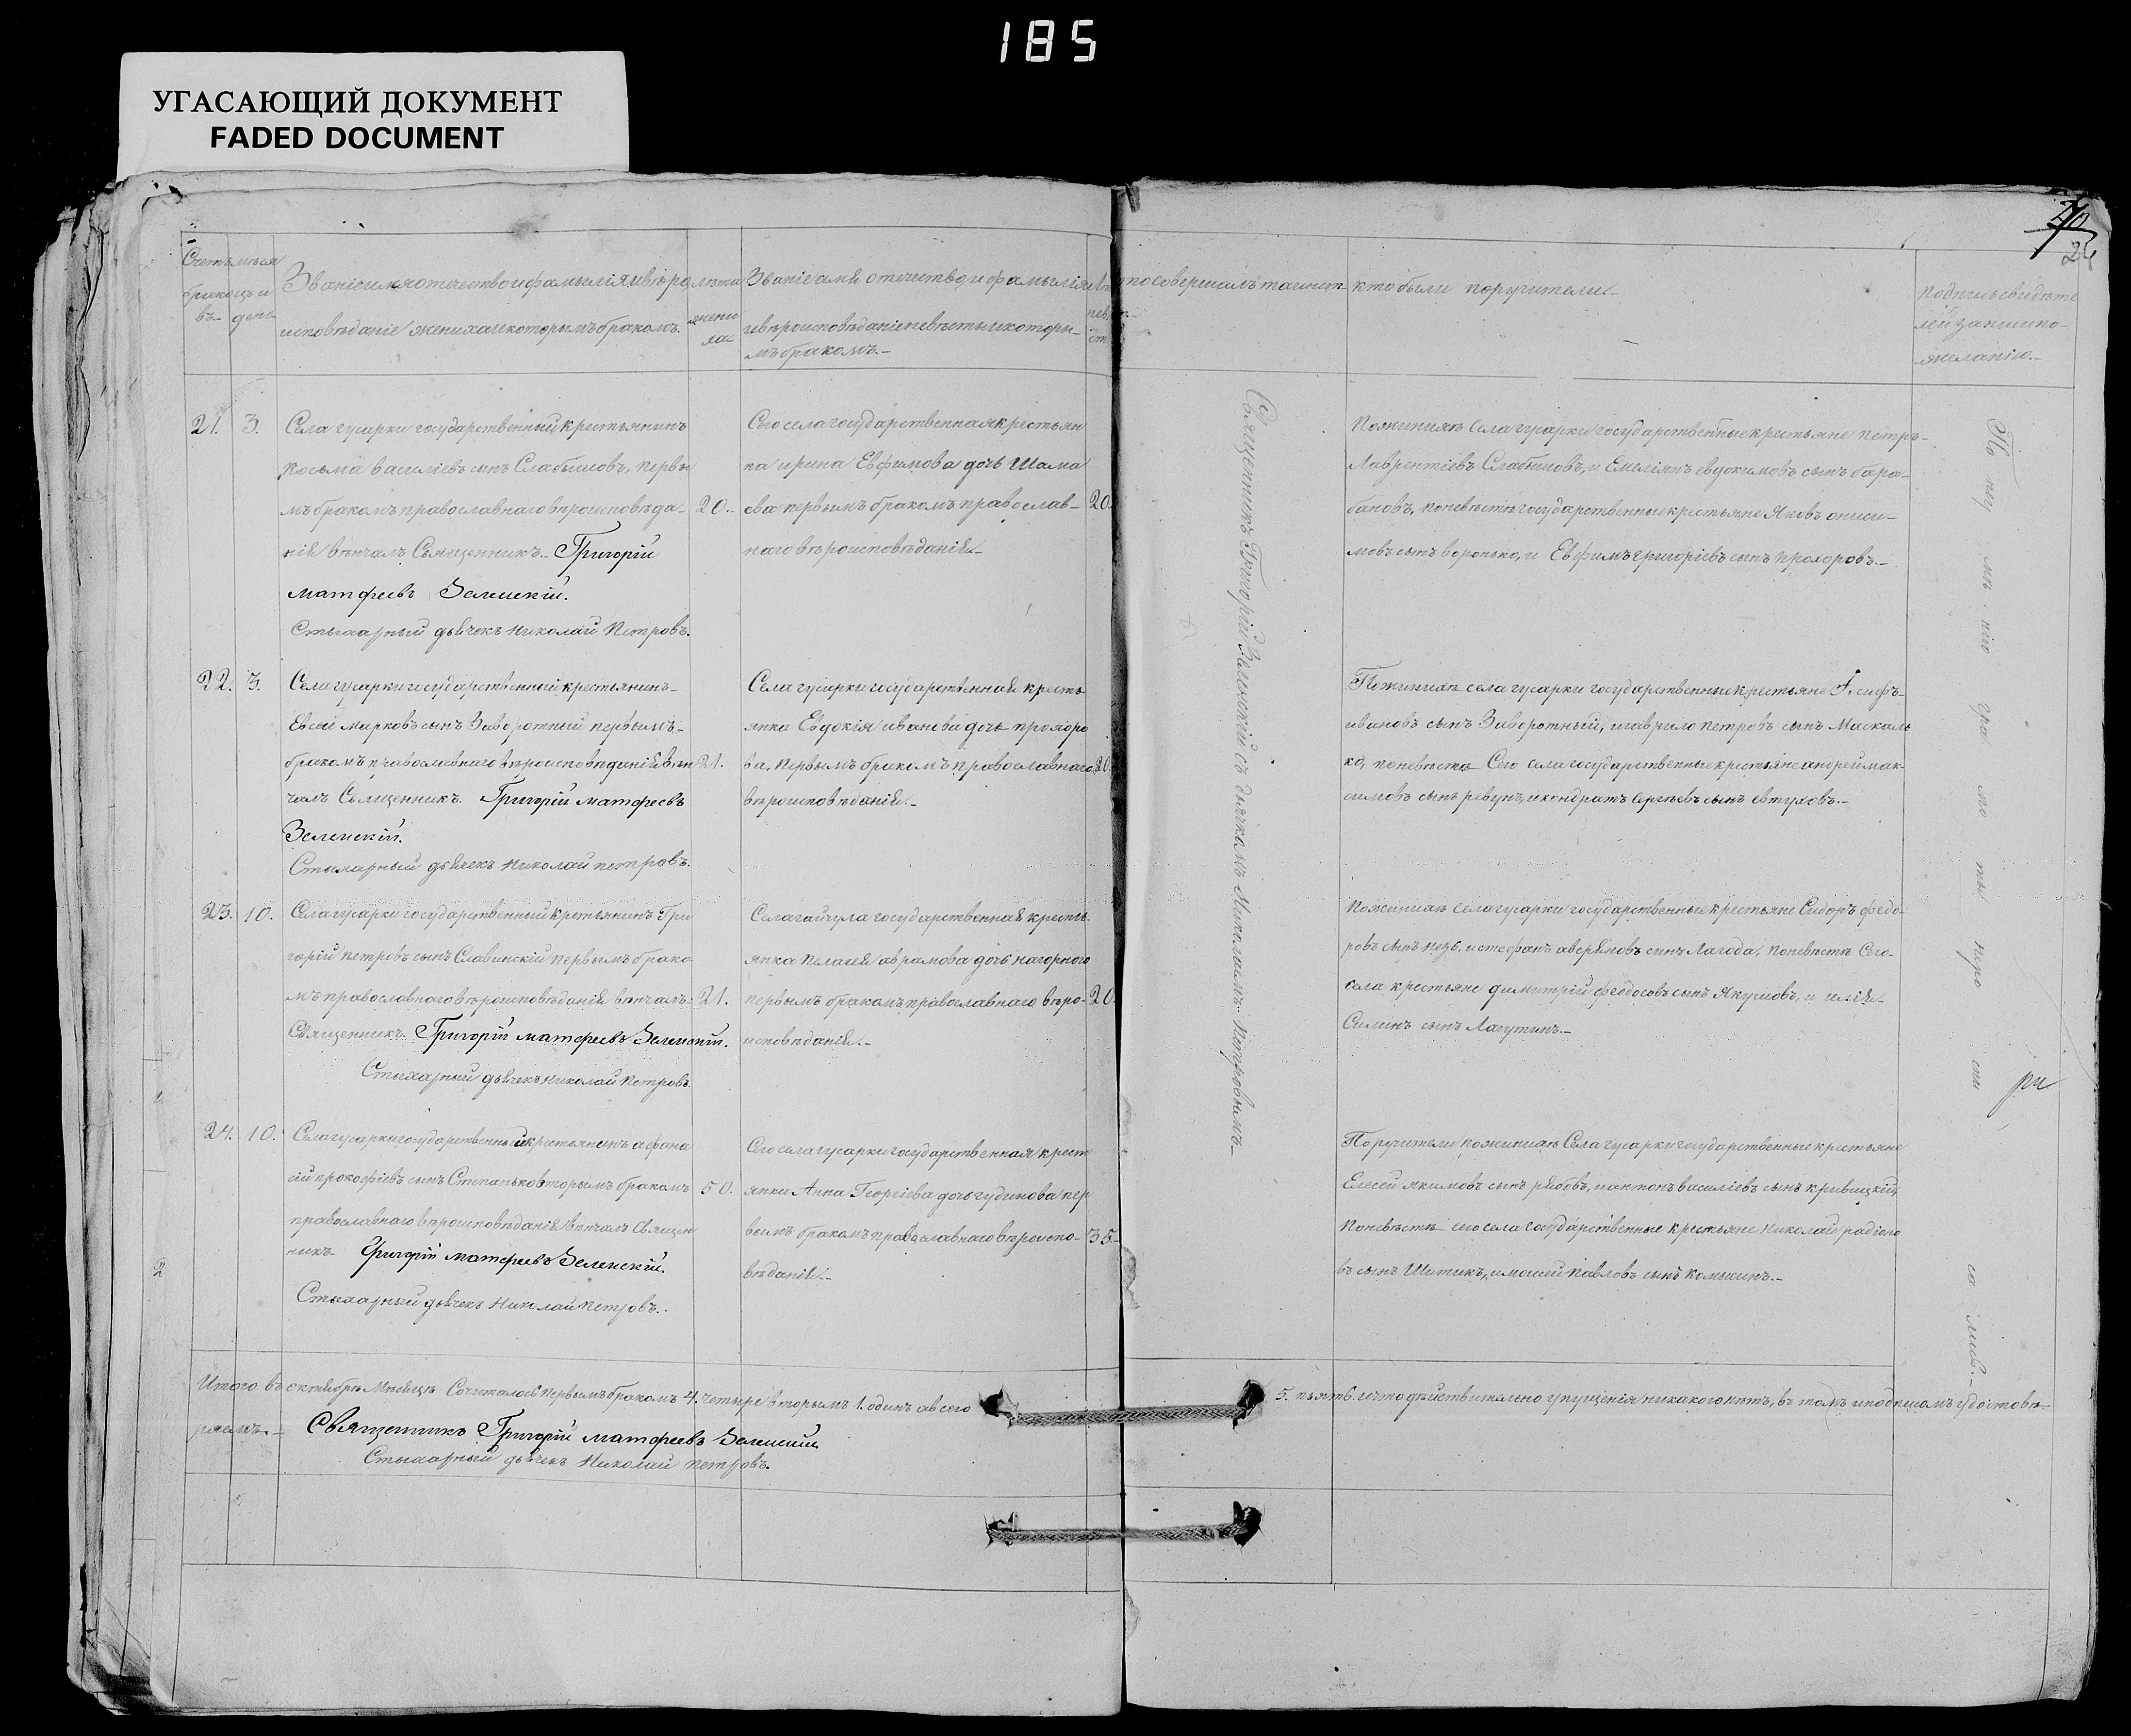 185
УГАСАЮЩИЙ ДОКУМЕНТ
FADED DOCUMENT
Счетъ
браковъ
мѣсяцъ и
день
Званіе имя отечество и фамылія и вѣро
исповѣданіе жениха и которымъ бракомъ.
лѣта
жени
ха
Званіе имя отечество и фамылія
и вѣроисповѣданіе невѣсты и которы-
мъ бракомъ.-
кто совершалъ таинст
кто были поручители.-
Подпись свидѣте
лей записи по-
желанію.-
21. 3.
Села гусарки государственный крестьянинъ
василіевъ сынъ первы
мъ бракомъ православнаго вѣроисповѣда-
нія вѣнчалъ Священникъ Григорій
матфеевъ Зеленскій.
Стыхарный дьячекъ Николай Петровъ.
20.
Сего села государственная крестьян
ка ирина Евфимова дочь Шама
ева первымъ бракомъ православ-
наго вѣроисповѣданія.-
20.
По женихѣ села гусарки государственные крестьяне петръ-
Лаврентіевъ и Емеліянъ евдокимовъ сынъ бара-
бановъ, по невѣстѣ государственные крестьяне Яковъ ониси-
мовъ сынъ воронько, и Евфимъ григоріевъ сынъ прохоровъ.-
22. 3.
Села гусарки государственный крестьянинъ-
Евсей марковъ сынъ Заворотный первымъ-
бракомъ православнаго вѣроисповѣданія вѣн
чалъ Священникъ. Григорій матфеевъ
Зеленскій.
Стыхарный дьячекъ Николай петровъ.
21.
Села гусарки государственная кресть
янка Евдокія иванова дочь прохоро
ва, первымъ бракомъ православнаго
вѣроисповѣданія.-
20.
По женихѣ села гусарки государственные крестьяне Іосифъ-
ивановъ сынъ Заворотный, и гаврило петровъ сынъ Маскаль
ко, по невѣстѣ Сего села государственные крестьяне андрей мак-
симовъ сынъ ревунъ, и кондратъ сергѣевъ сынъ евтуховъ.-
23. 10.
Села гусарки государственный крестьянинъ Гри
горій петровъ сынъ Славинскій первымъ брако
мъ православнаго вѣроисповѣданія вѣнчалъ-
Священникъ. Григорій матфеевъ Зеленскій.
Стыхарный дьячекъ Николай Петровъ.
21.
Села гайчула государственная кресть
янка пелагея аврамова дочь нагорного
первымъ бракомъ православнаго вѣро-
исповѣданія.-
20.
По женихѣ села гусарки государственные крестьяне Сидоръ федо-
ровъ сынъ и стефанъ аверяновъ сынъ Лагода, по невѣстѣ Сего-
села крестьяне димитрій феодосовъ сынъ Якушовъ, и илія-
Силинъ сынъ Лагутинъ.-
24. 10.
Села гусарки государственный крестьянинъ афана
сій прокофіевъ сынъ Степанько вторымъ бракомъ
православнаго вѣроисповѣданія вѣнчалъ Священ
никъ Григорій матфеевъ Зеленскій.
Стыхарный дьячекъ Николай петровъ.
50.
Сего села гусарки государственная крест
янка Анна Георгіева дочь гудинова пер
вымъ бракомъ православнаго вѣроиспо-
вѣданія.-
35.
Поручители по женихѣ Села гусарки государственные крестьяне
Елесей якимовъ сынъ рябовъ, и антонъ василіевъ сынъ кривицкій,
По невѣстѣ сего села государственные крестьяне николай радіоно
въ сынъ Шитикъ, и моисей павловъ сынъ Комыкинъ.-
Священникъ Григорій Зеленскій съ дьячкамъ Николаемъ Петровымъ
По неу мѣ нію гра мо ты не ро спи са лись.-
ри
Итого въ октябрѣ Мѣсяцѣ Сочиталось первымъ бракомъ 4. четыре вторымъ 1. одинъ а всего 5. пьять. и что дѣйствительно упущенія никакого нѣтъ, въ томъ и подписомъ удостовѣ-
ряемъ.-
Священникъ Григорій матфеевъ Зеленскій
Стыхарный дьячекъ Николай петровъ.